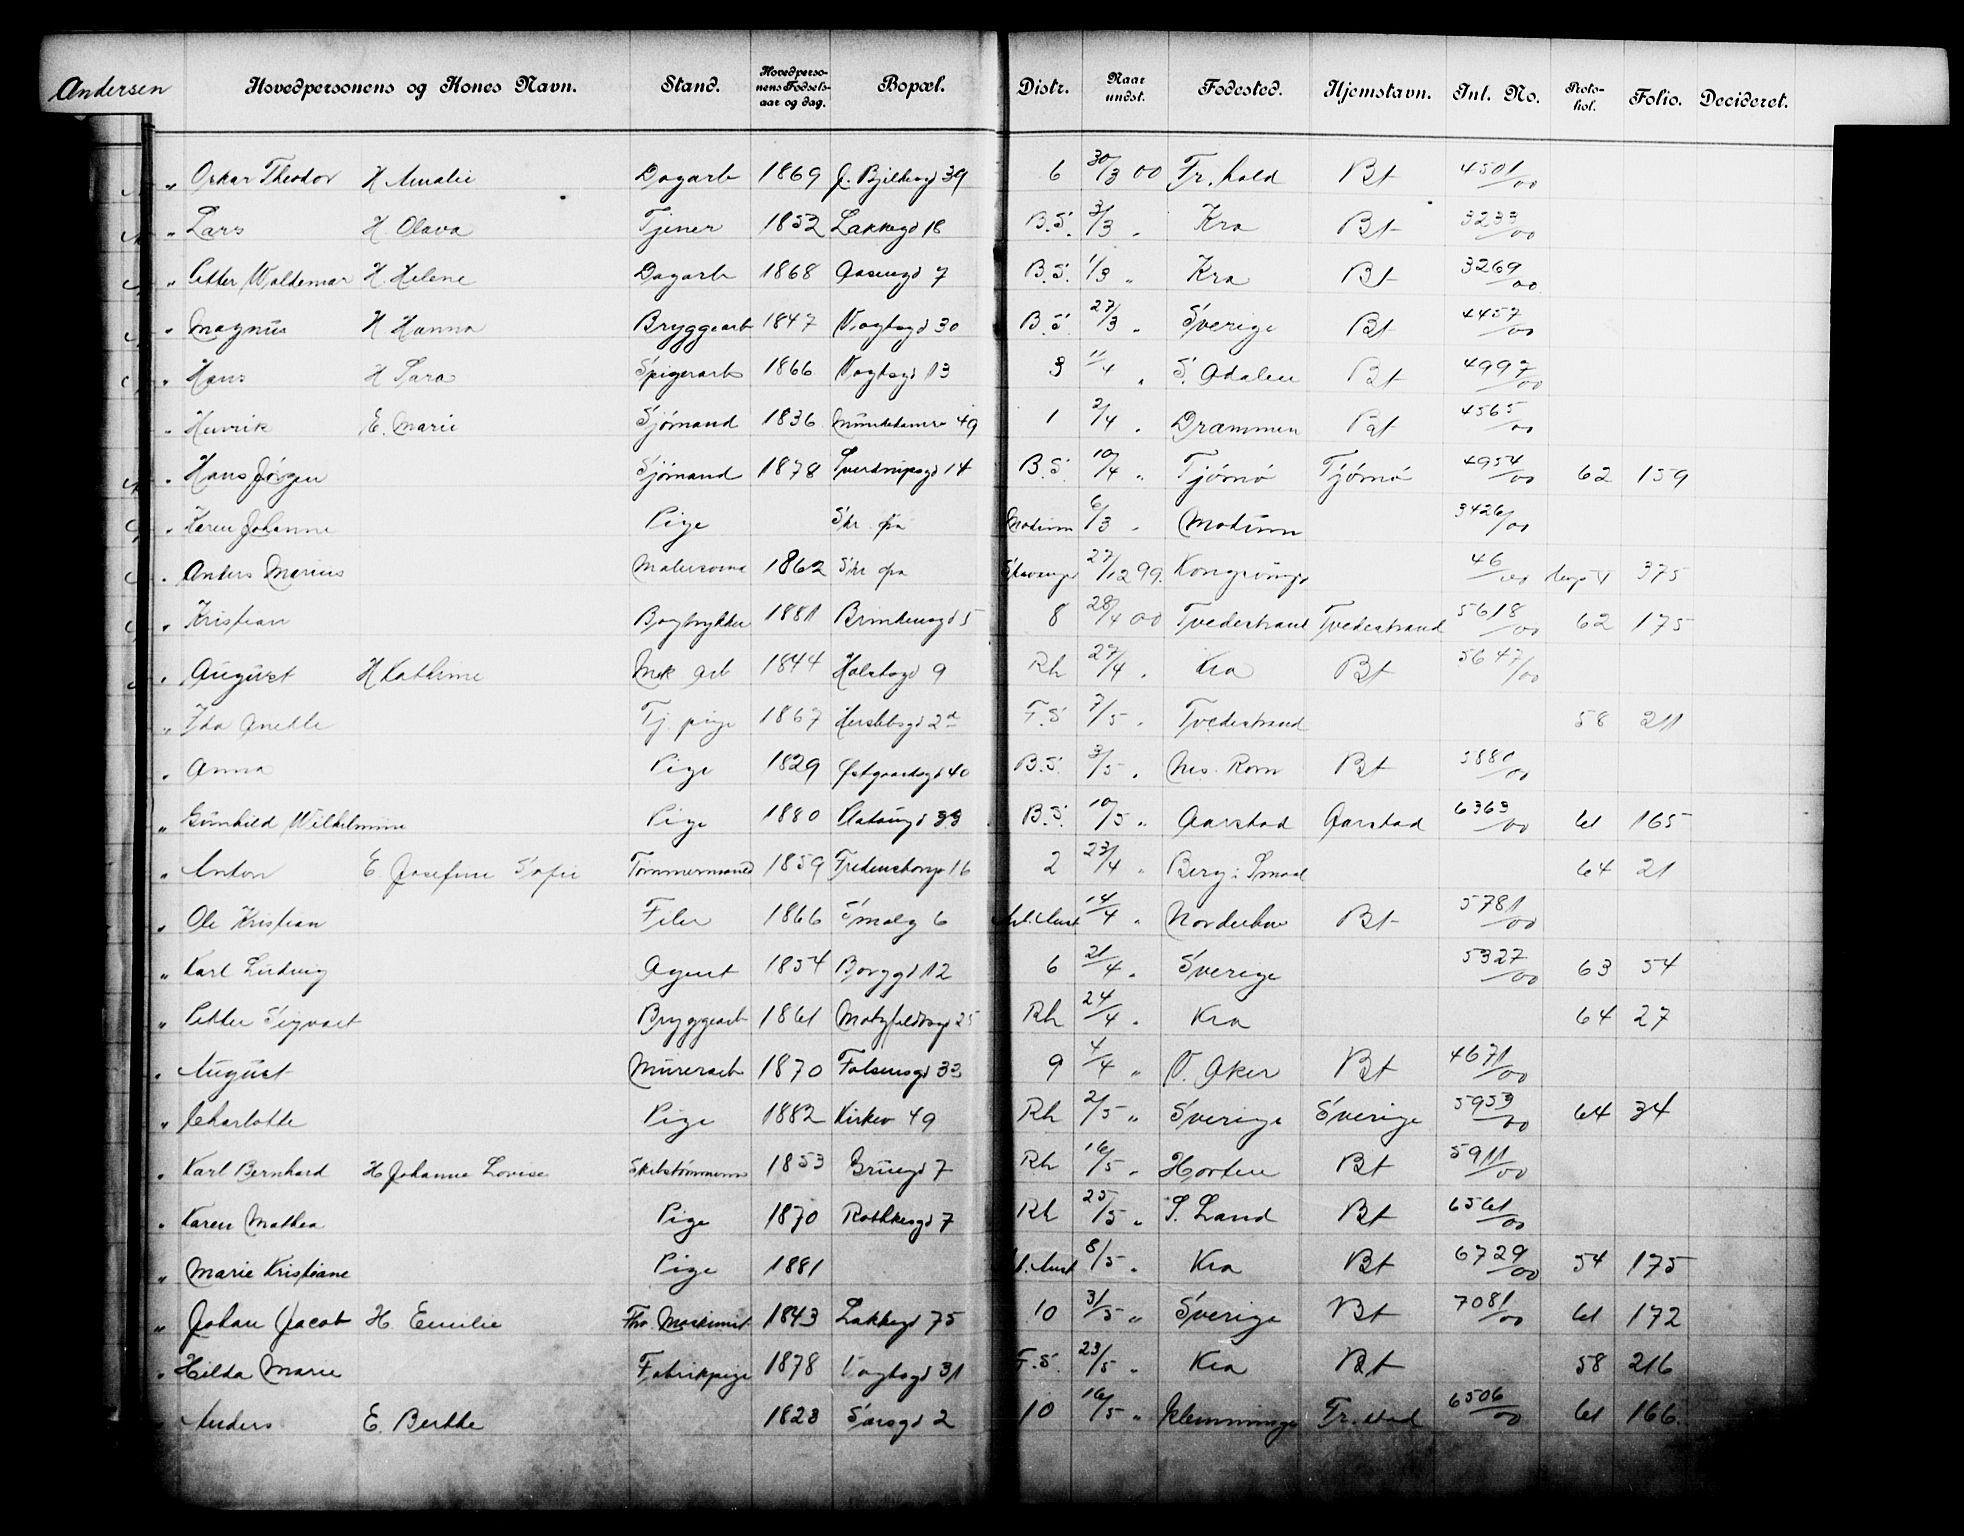 Andersen Hovedpersonens og Kones Navn. Stand. Hovedpersonens Fødselsaar og dag. Bopæl. Distr. Naar undst. Fødested. Hjemstavn. Inl. No. Protokol. Folio. Decideret.
" Oskar Theodor H Amalie Dagarb 1869 39 6 30/3 00 Fr.hald Bt 4501/00
" Lars H. Olava Tjener 1852 Lakkegd 18 B.S. 3/3 " Kra Bt 3233/00
" Petter Waldemar H. Helene Dagarb 1868 Aasengd 7 B.S. 1/3 " Kra Bt 3269/00
" Magnus H Hanna Bryggearb 1847 Vogtsgd 30 B.S. 27/3 " Sverige Bt 4457/00
" Hans H Sara Spigerarb 1866 Vogtsgd 13 3 11/4 " S. Adalen Bt 4997/00
" Henrik E. Marie Sjømand 1836 49 1 2/4 " Drammen Bt 4565/00
" Hans Jørgen Sjømand 1878 Sverdrupsgd 14 B.S. 10/4 " Tjømø Tjømø 4954/00 62 159
" Karen Johanne Pige Skr. fra Modum 6/3 " Modum 3426/00
" Anders Marius 1862 Skr fra 27/12 99. 46/00 375
" Kristian Bogtrykker 1881 Brinkensgd 5 8 28/4 00 Tvedestrand Tvedestrand 5618/00 62 175
" August H Kathrine Mek Arb 1844 Holstsgd 9 Rh 27/4 " Kra Bt 5647/00
" Ida Anette Tj. pige 1867 Herslebsgd 2d F.S 7/5 " Tvedestrand 58 211
" Anna Pige 1829 Østgaardsgd 40 B.S. 3/5 " Nes. Rom Bt 5880/00
" Gunhild Wilhelmine Pige 1880 33 B.S. 10/5 " Aarstad Aarstad 6363/00 61 165
" Anton E. Josefine Sofie Tømmermand 1859 Fredensborgv 16 2 23/4 " Berg i Smaal 64 21
" Ole Kristian Filer 1866 Smalg 6 14/4 " Norderhov Bt 5781/00
" Karl Ludvig Agent 1854 Borggd 12 6 21/4 " Sverige 5327/00 63 54
" Petter Sigvart Bryggearb 1861 Motzfeldtsgd 25 Rh 24/4 " Kra 64 27
" August Murerarb 1870 33 9 4/4 " V. Aker Bt 4671/00
" Charlotte Pige 1882 Kirkev 49 Rh 2/5 " Sverige Sverige 5953/00 64 34
" Karl Bernhard H Johanne Lovise Skibstømmerm 1853 Brugd 7 Rh 16/5 " Horten Bt 5911/00
" Karen Mathea Pige 1870 Rathkesgd 7 Rh 25/5 " S. Land Bt 6561/00
" Marie Kristiane Pige 1881 8/5 " Kra Bt 6729/00 54 175
" Johan Jacob H. Emilie Fhv. Maskinist 1843 Lakkegd 75 10 31/5 " Sverige Bt 7081/00 61 172
" Hilda Marie Fabrikpige 1878 Vogtsgd 31 F.S. 23/5 " Kra Bt 58 216
" Anders E. Berthe 1823 Sarsgd 2 10 16/5 " Fr.stad 6506/00 61 166.